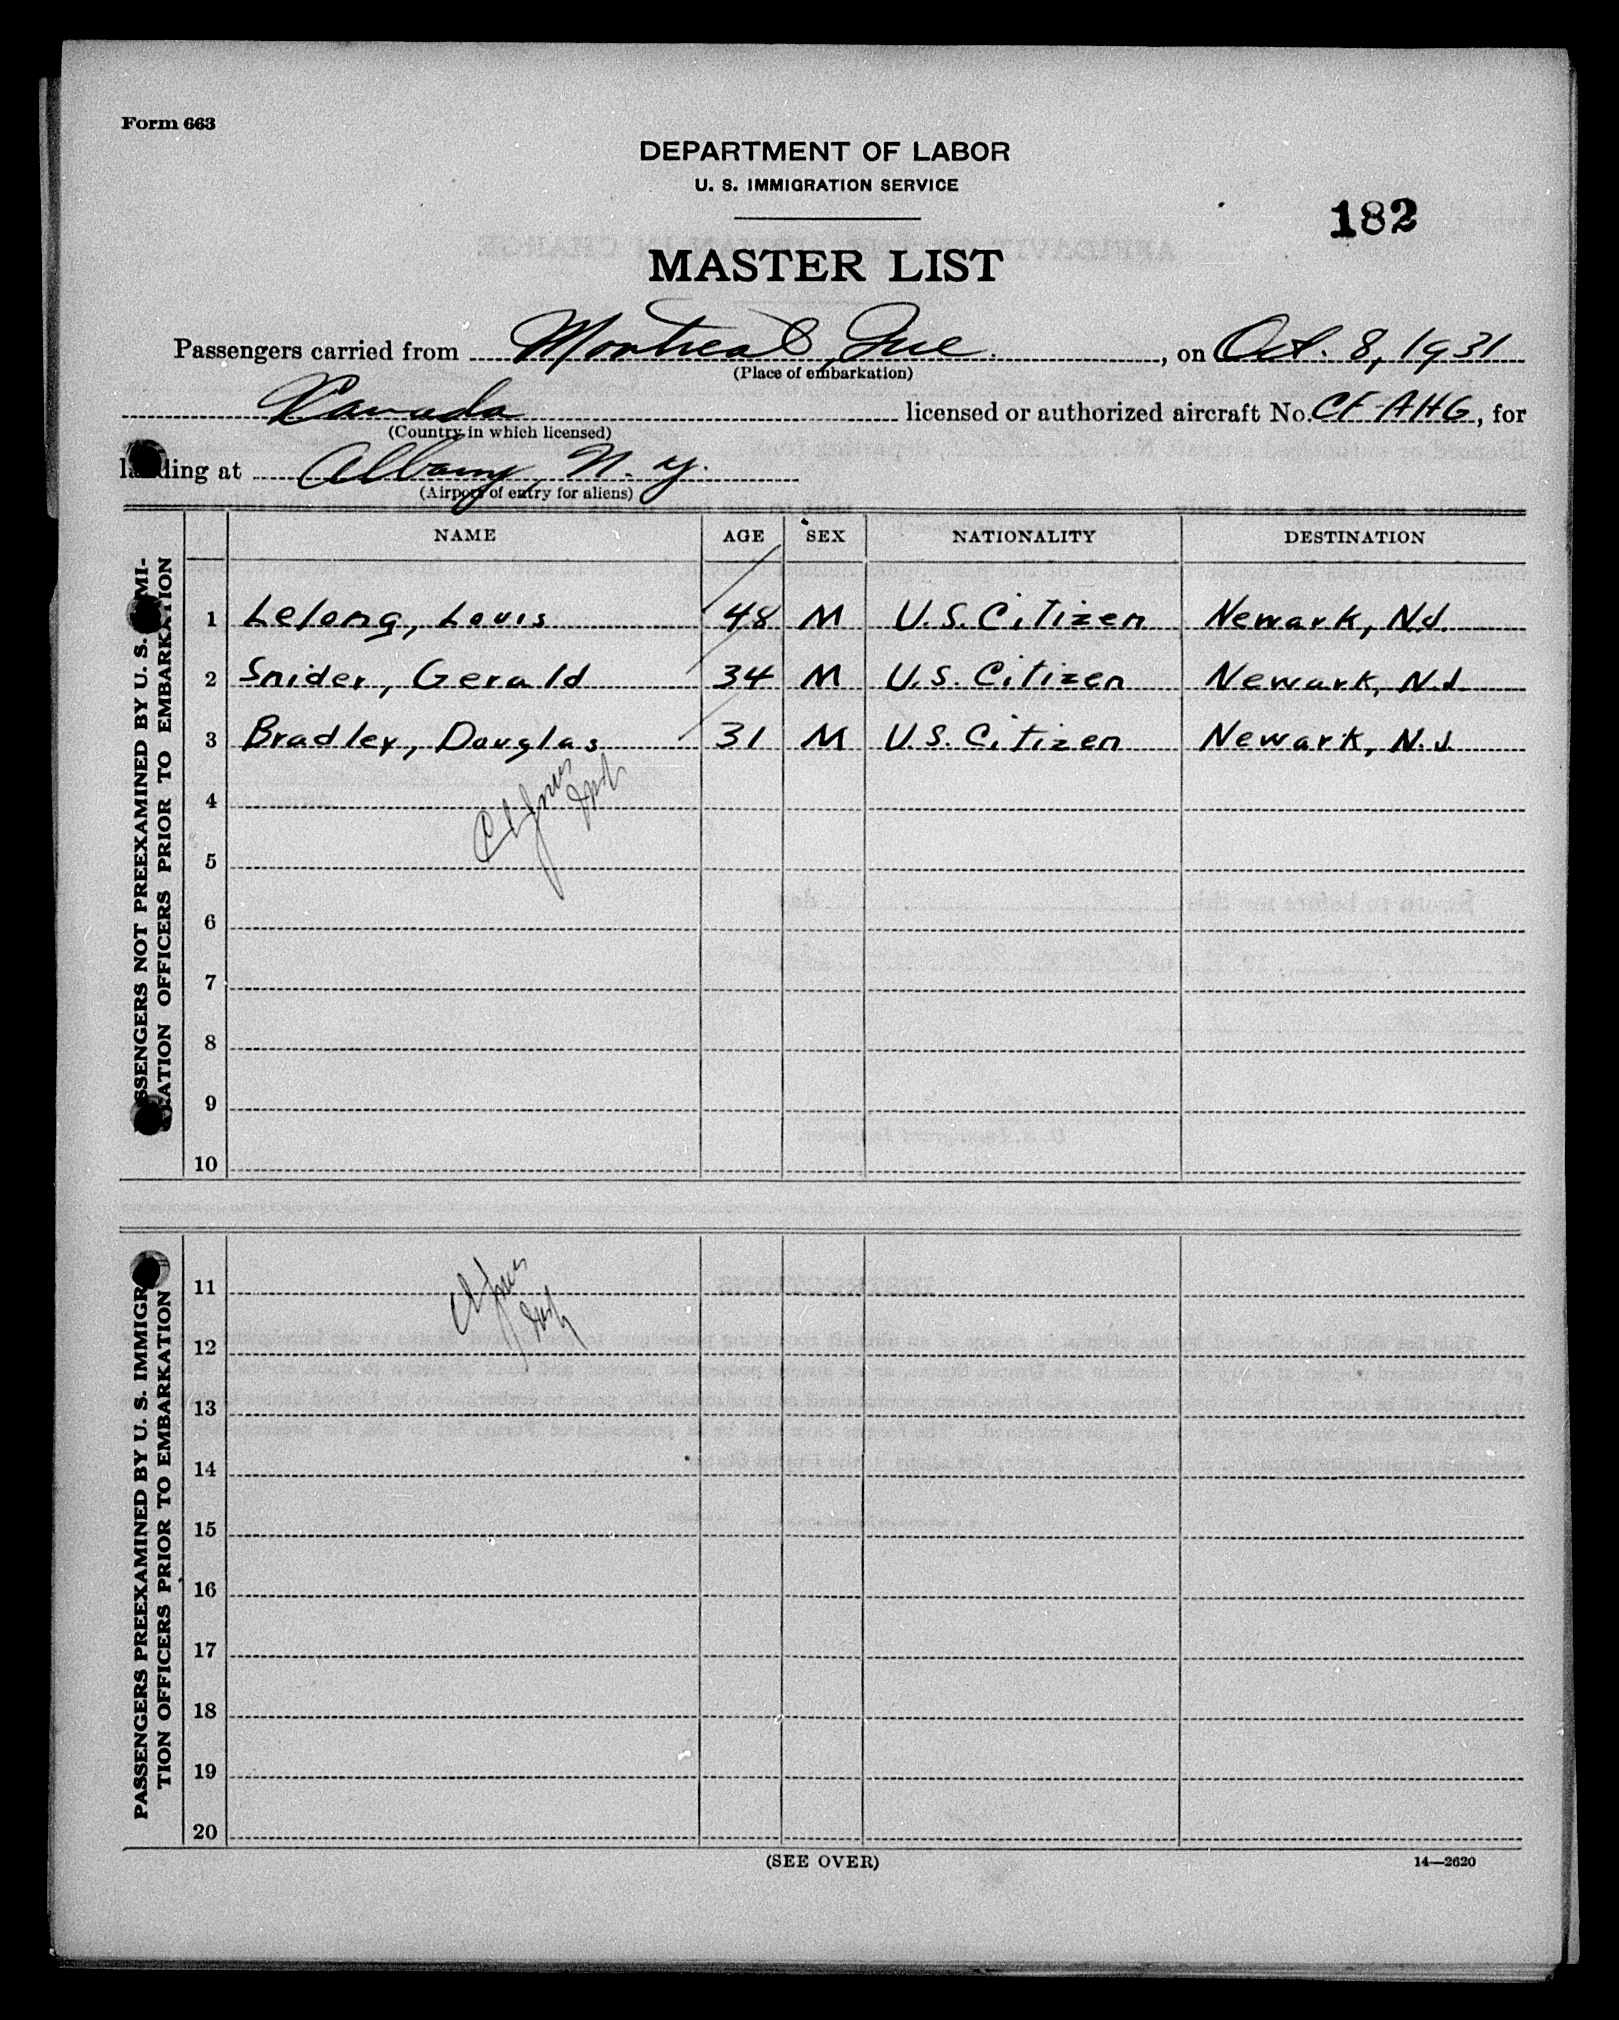 Form 663
DEPARTMENT OF LABOR
U. S. IMMIGRATION SERVICE
182
MASTER LIST
Passengers carried from Montreal, Que. , on Oct. 8, 1931
(Place of embarkation)
Canada licensed or authorized aircraft No. CF AHG, for
(Country in which licensed)
landing at Albany, N. Y.
(Airport of entry for aliens)
NAME AGE SEX NATIONALITY DESTINATION
PASSENGERS NOT PREEXAMINED BY U. S. IMMI-
GRATION OFFICERS PRIOR TO EMBARKATION
1 Lelong, Louis 48 M U.S. Citizen Newark, N.J.
2 Snider, Gerald 34 M U.S. Citizen Newark, N.J.
3 Bradley, Douglas 31 M U.S. Citizen Newark, N.J.
4
5
6
7
8
9
10
PASSENGERS PREEXAMINED BY U. S. IMMIGRA-
TION OFFICERS PRIOR TO EMBARKATION
11
12
13
14
15
16
17
18
19
20
(SEE OVER)
14—2620